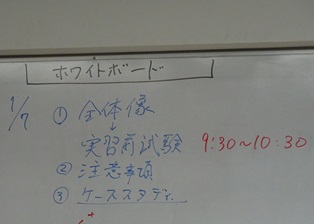 ホワイトボード
1/7 ① 全体像
↓
実習前試験 9:30~10:30
② 注意事項
③ ケーススタディ